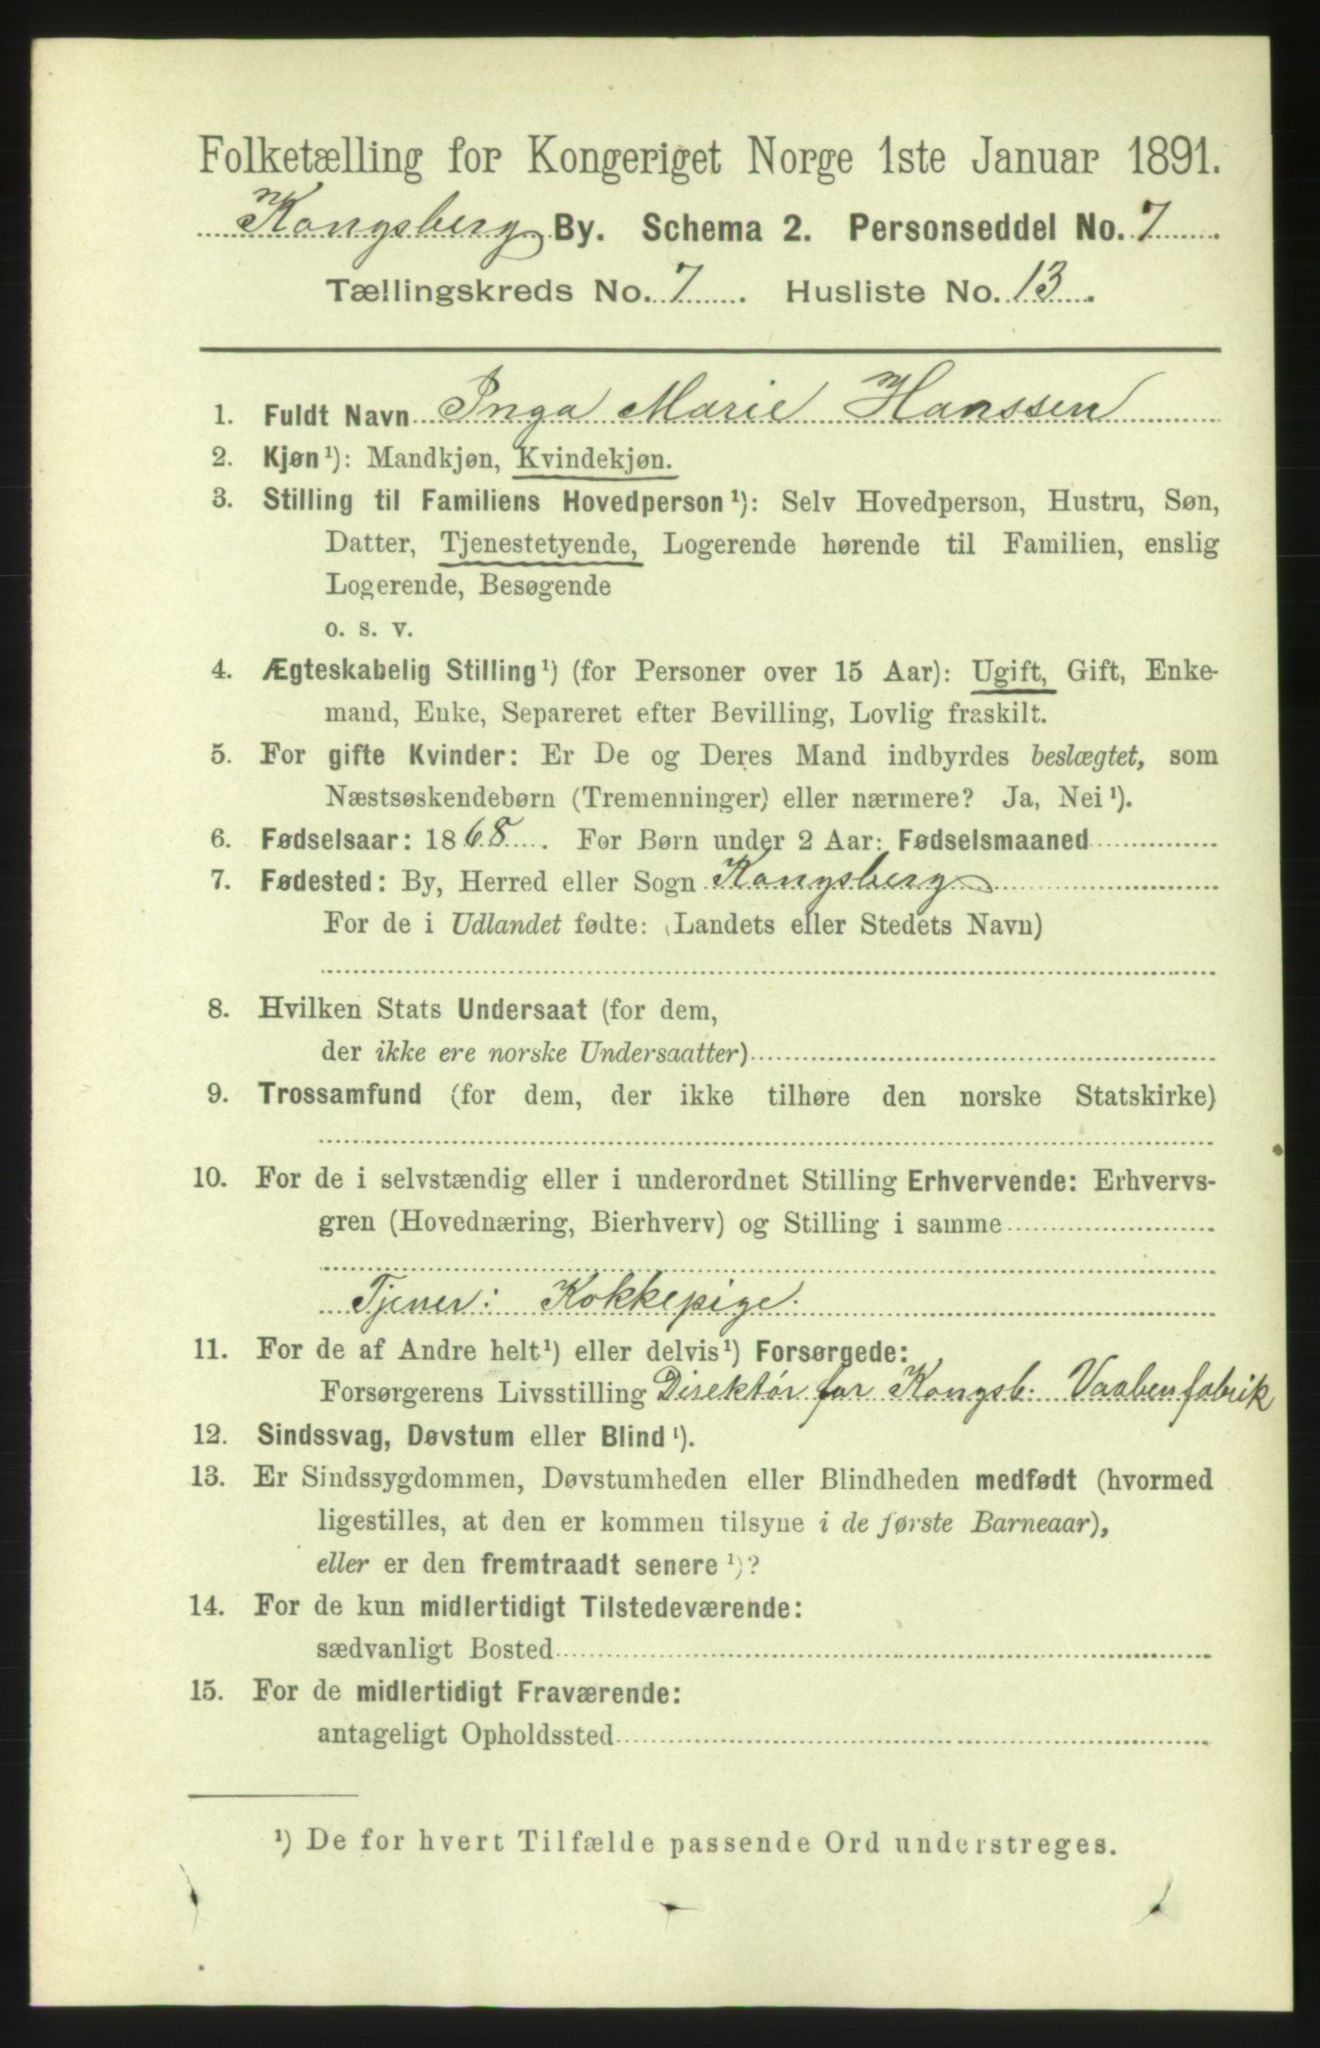 Folketælling for Kongeriget Norge 1ste Januar 1891.
Kongsberg By. Schema 2. Personseddel No. 7
Tællingskreds No. 7. Husliste No. 13.
1. Fuldt Navn Inga Marie Hanssen
2. Kjøn¹): Mandkjøn, Kvindekjøn.
3. Stilling til Familiens Hovedperson¹): Selv Hovedperson, Hustru, Søn,
Datter, Tjenestetyende, Logerende hørende til Familien, enslig
Logerende, Besøgende
o. s. v.
4. Ægteskabelig Stilling¹) (for Personer over 15 Aar): Ugift, Gift, Enke-
mand, Enke, Separeret efter Bevilling, Lovlig fraskilt.
5. For gifte Kvinder: Er De og Deres Mand indbyrdes beslægtet, som
Næstsøskendebørn (Tremenninger) eller nærmere? Ja, Nei¹).
6. Fødselsaar: 1868. For Børn under 2 Aar: Fødselsmaaned
7. Fødested: By, Herred eller Sogn Kongsberg
For de i Udlandet fødte: (Landets eller Stedets Navn)
8. Hvilken Stats Undersaat (for dem,
der ikke ere norske Undersaatter)
9. Trossamfund (for dem, der ikke tilhøre den norske Statskirke)
10. For de i selvstændig eller i underordnet Stilling Erhvervende: Erhvervs-
gren (Hovednæring, Bierhverv) og Stilling i samme
Tjener: Kokkepige.
11. For de af Andre helt¹) eller delvis¹) Forsørgede:
Forsørgerens Livsstilling Direktør for Kongsb: Vaabenfabrik
12. Sindssvag, Døvstum eller Blind¹).
13. Er Sindssygdommen, Døvstumheden eller Blindheden medfødt (hvormed
ligestilles, at den er kommen tilsyne i de første Barneaar),
eller er den fremtraadt senere¹)?
14. For de kun midlertidigt Tilstedeværende:
sædvanligt Bosted
15. For de midlertidigt Fraværende:
antageligt Opholdssted
¹) De for hvert Tilfælde passende Ord understreges.